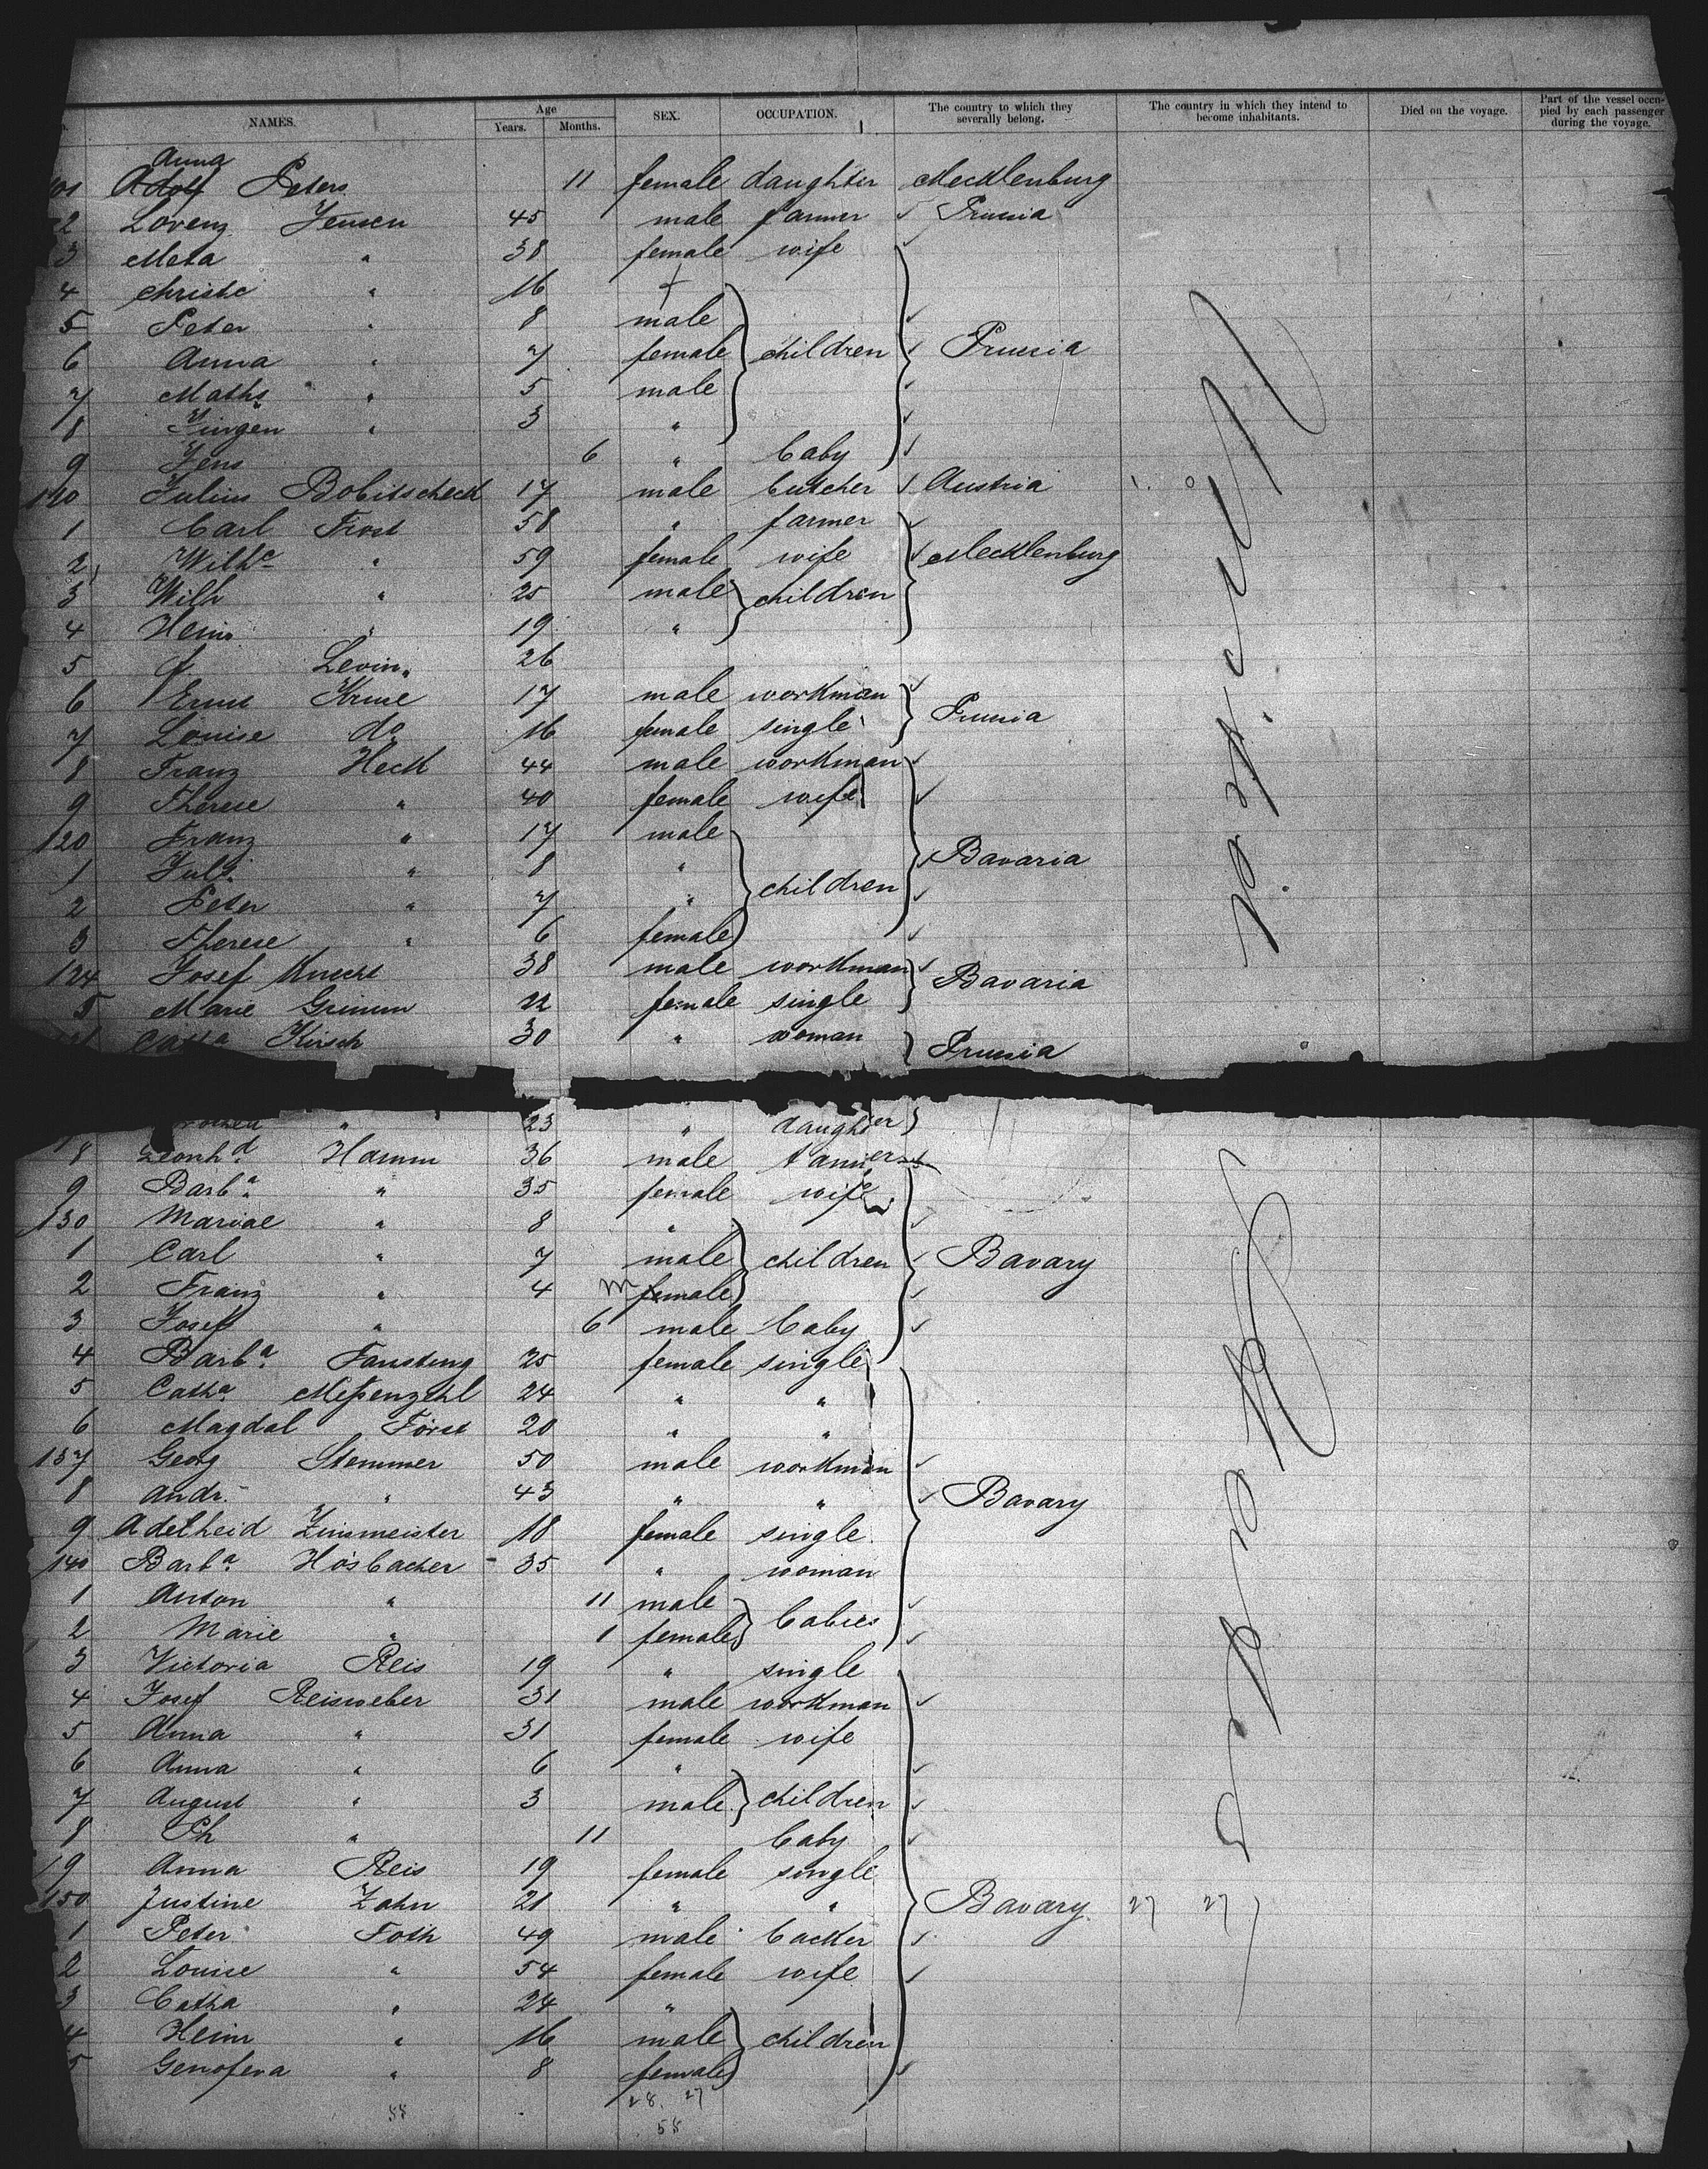 NAMES. Age SEX. OCCUPATION. The country to which they severally belong. The country in which they intend to become inhabitants. Died on the voyage. Part of the vessel occupied by each passenger during the voyage.
Years. Months.
Anna
101 Adolf Peters 11 female daughter Mecklenburg
2 Lorenz Jensen 45 male farmer Prussia
3 Meta " 38 female wife
4 Christe " 16 +
5 Peter " 8 male
6 Anna " 7 female children Prussia
7 Maths " 5 male
8 Jürgen " 3 "
9 Jens 6 " baby
110 Julius Bobitscheck 17 male butcher Austria
1 Carl Frost 58 " farmer
2 Wilhe " 59 female wife Mecklenburg
3 Wilh " 25 male children
4 Heinr " 19 "
5 Levin 26
6 Ernst Kruse 17 male workman
7 Louise do 16 female single Prussia
8 Franz Heck 44 male workman
9 Therese " 40 female wife
120 Franz " 17 male
1 Juls " 8 " Bavaria
2 Peter " 7 " children
3 Therese " 6 female
124 Josef Knecht 38 male workman Bavaria
5 Marie Grimm 22 female single
Catha Kirsch 30 " woman Prussia
" 23 " daughter
8 Leonhd Hamm 36 male farmer
9 Barba " 35 female wife
130 Mariae " 8 "
1 Carl " 7 male children Bavary
2 Franz " 4 m female
3 Josef " 6 male baby
4 Barba Fausting 25 female single
5 Catha Meßenzehl 24 " "
6 Magdal Först 20 " "
137 Georg Stemmer 50 male workman
8 Andr. " 43 " " Bavary
9 Adelheid Zinsmeister 18 female single
140 Barba Hösbacher - 35 " woman
1 Anton " 11 male
2 Marie " 1 female babies
3 Victoria Reis 19 " single
4 Josef Reisweber 31 male workman
5 Anna " 31 female wife
6 Anna " 6 "
7 August " 3 male children
8 Ph " 11 baby
19 Anna Reis 19 female single
150 Justine Zahn 21 " " Bavary 27 27
1 Peter Foth 49 male backer
2 Louise " 54 female wife
3 Catha " 24 "
4 Heinr " 16 male children
5 Genofeva " 8 female
28. 27
58